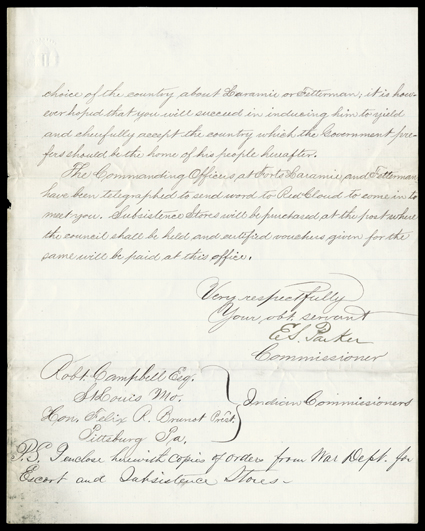 choice of the country about Laramie or Fetterman; it is how-
ever hoped that you will succeed in inducing him to yield
and cheerfully accept the country which the Government pre-
fers should be the home of his people hereafter.
The Commanding Officers, at Forts Laramie, and Fetterman
have been telegraphed to send word to Red Cloud to come in to
meet you. Subsistence Stores will be purchased at the post where
the council shall be held and certified vouchers given for the
same will be paid at this office.
Very respectfully
Your obt. servant
E.S. Parker
Commissioner
Robt. Campbell Esq.
St Louis Mo.
Hon. Felix R. Brunot Prest.
Pittsburg Pa.
Indian Commissioners
P.S. I enclose herewith copies of orders from War Dept. for
Escort and Subsistence Stores-